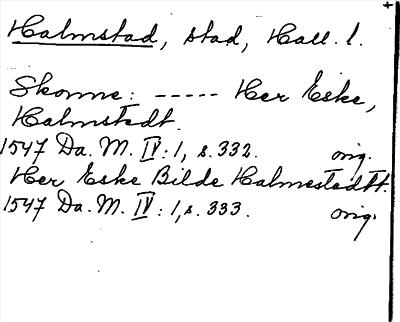 Halmstad, stad, Hall. l.
Skonne: ----- Her Eske,
Halmstedt.
1547 Da. M. IV: 1, s. 332. orig.
Her Eske Bilde Halmestedtt.
1547 Da. M. IV: 1, s. 333. orig.